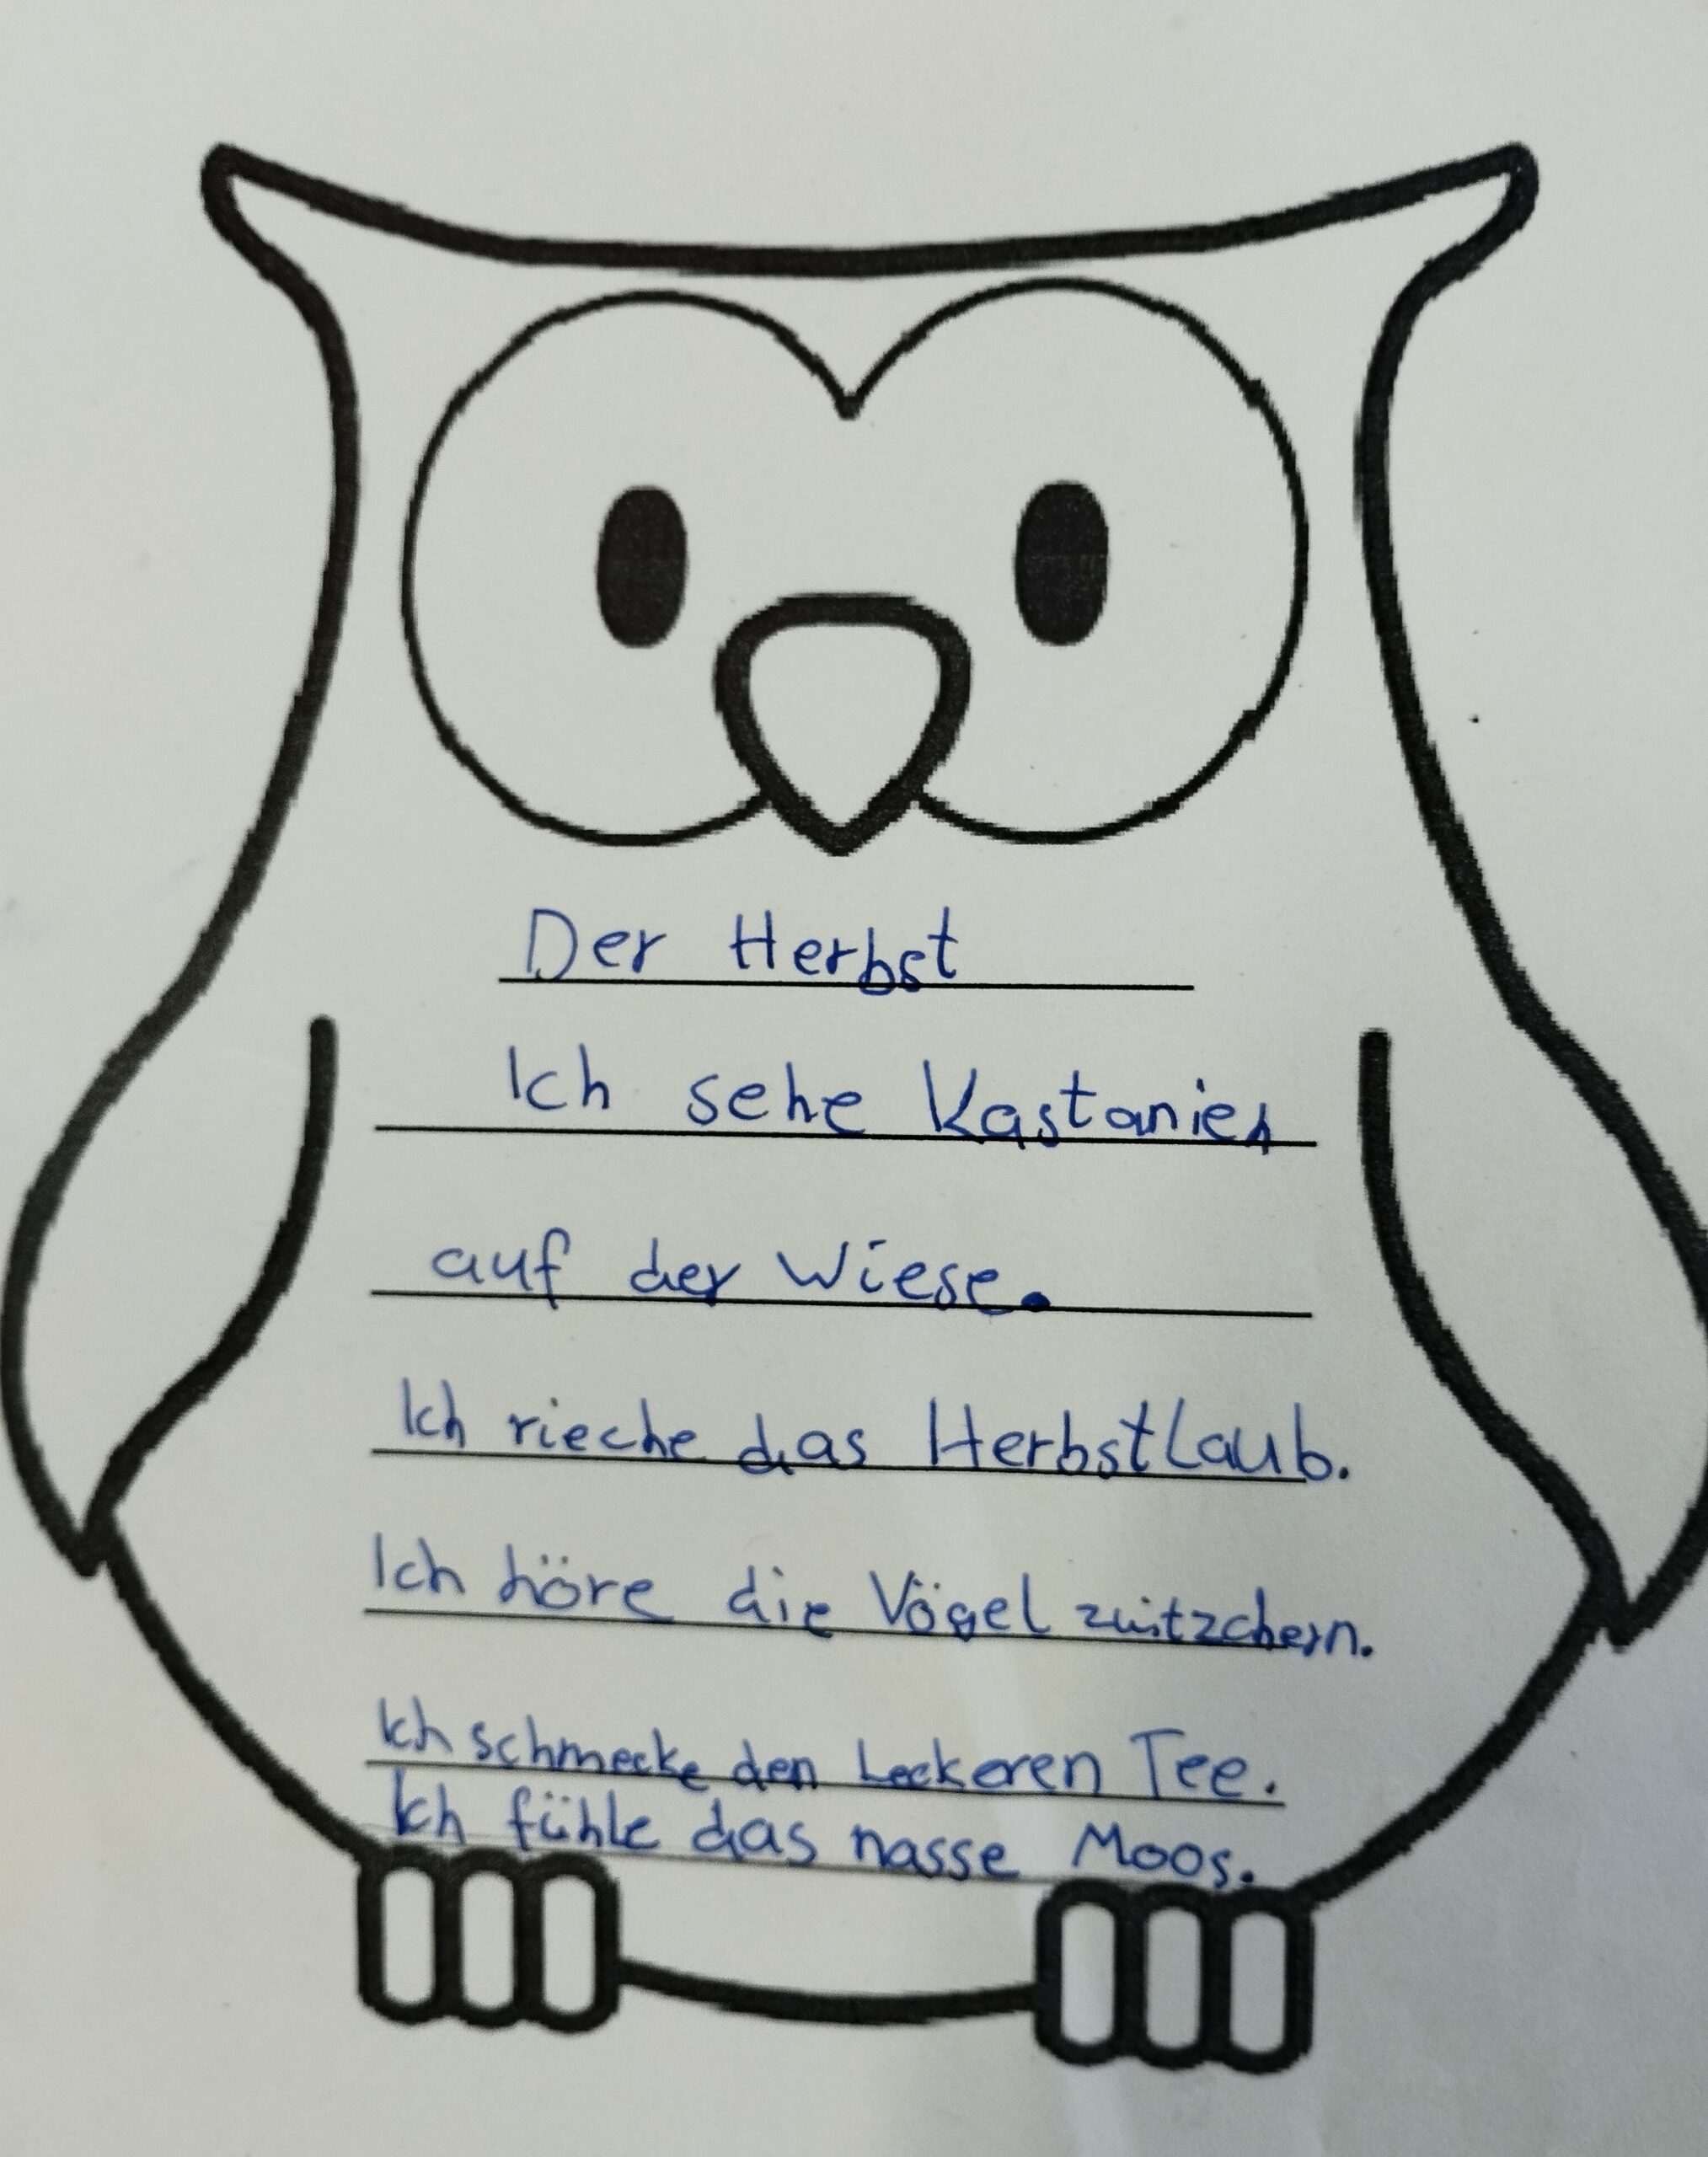 Der Herbst
Ich sehe Kastanien
auf der Wiese.
Ich rieche das Herbstlaub.
Ich höre die Vögel zwitzchern.
Ich schmecke den leckeren Tee.
Ich fühle das nasse Moos.